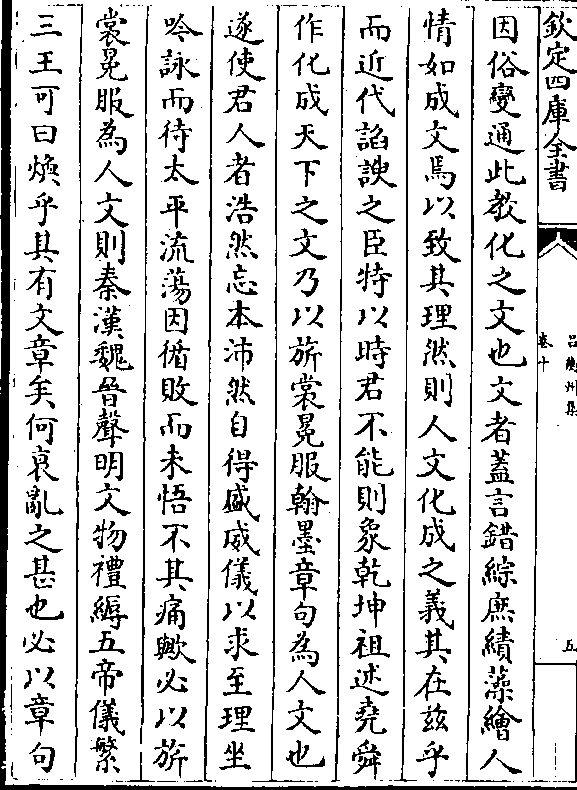 欽定四庫全書
呂衡州集
卷十
五
因俗變通此教化之文也文者蓋言錯綜庶績藻繪人
情如成文焉以致其理然則人文化成之義其在兹乎
而近代諂諛之臣特以時君不能則象乾坤祖述堯舜
作化成天下之文乃以旂裳冕服翰墨章句為人文也
遂使君人者浩然忘本沛然自得盛威儀以求至理坐
吟詠而待太平流蕩因循敗而未悟不其痛歟必以旂
裳冕服為人文則秦漢魏晉聲明文物禮縟五帝儀繁
三王可曰煥乎其有文章矣何衰亂之甚也必以章句